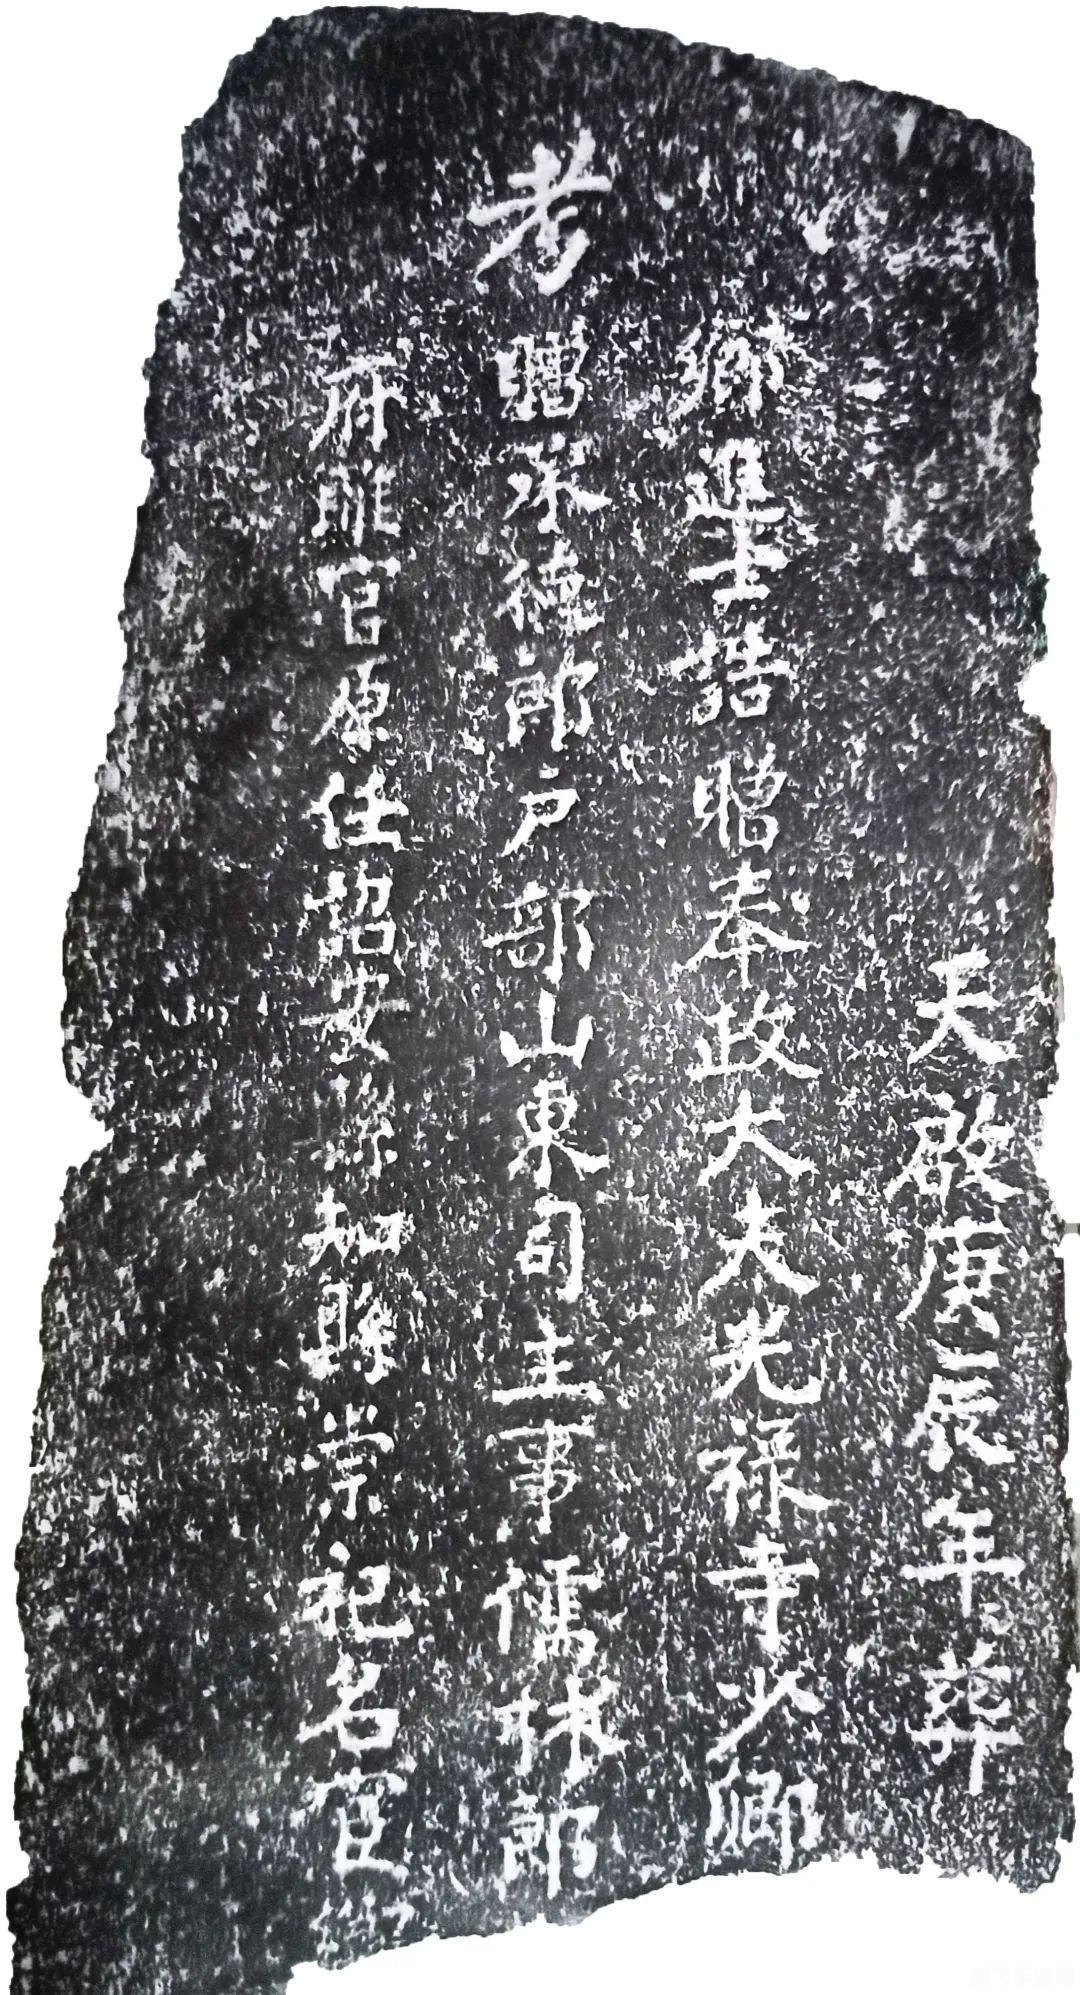 天啟庚辰年葬
鄉進士誥贈奉政大夫光祿寺少卿
考贈承德郎戶部山東司主事儒林郎
府推官原任詔安縣知縣崇祀名宦